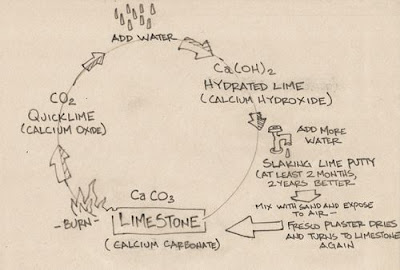 ADD WATER
Ca(OH)2
HYDRATED LIME
(CALCIUM HYDROXIDE)
ADD MORE
WATER
SLAKING LIME PUTTY
(AT LEAST 2 MONTHS,
2 YEARS BETTER)
MIX WITH SAND AND EXPOSE
TO AIR—
FRESCO PLASTER DRIES
AND TURNS TO LIMESTONE
AGAIN
CaCO3
LIMESTONE
(CALCIUM CARBONATE)
-BURN-
CO2
QUICKLIME
(CALCIUM OXIDE)